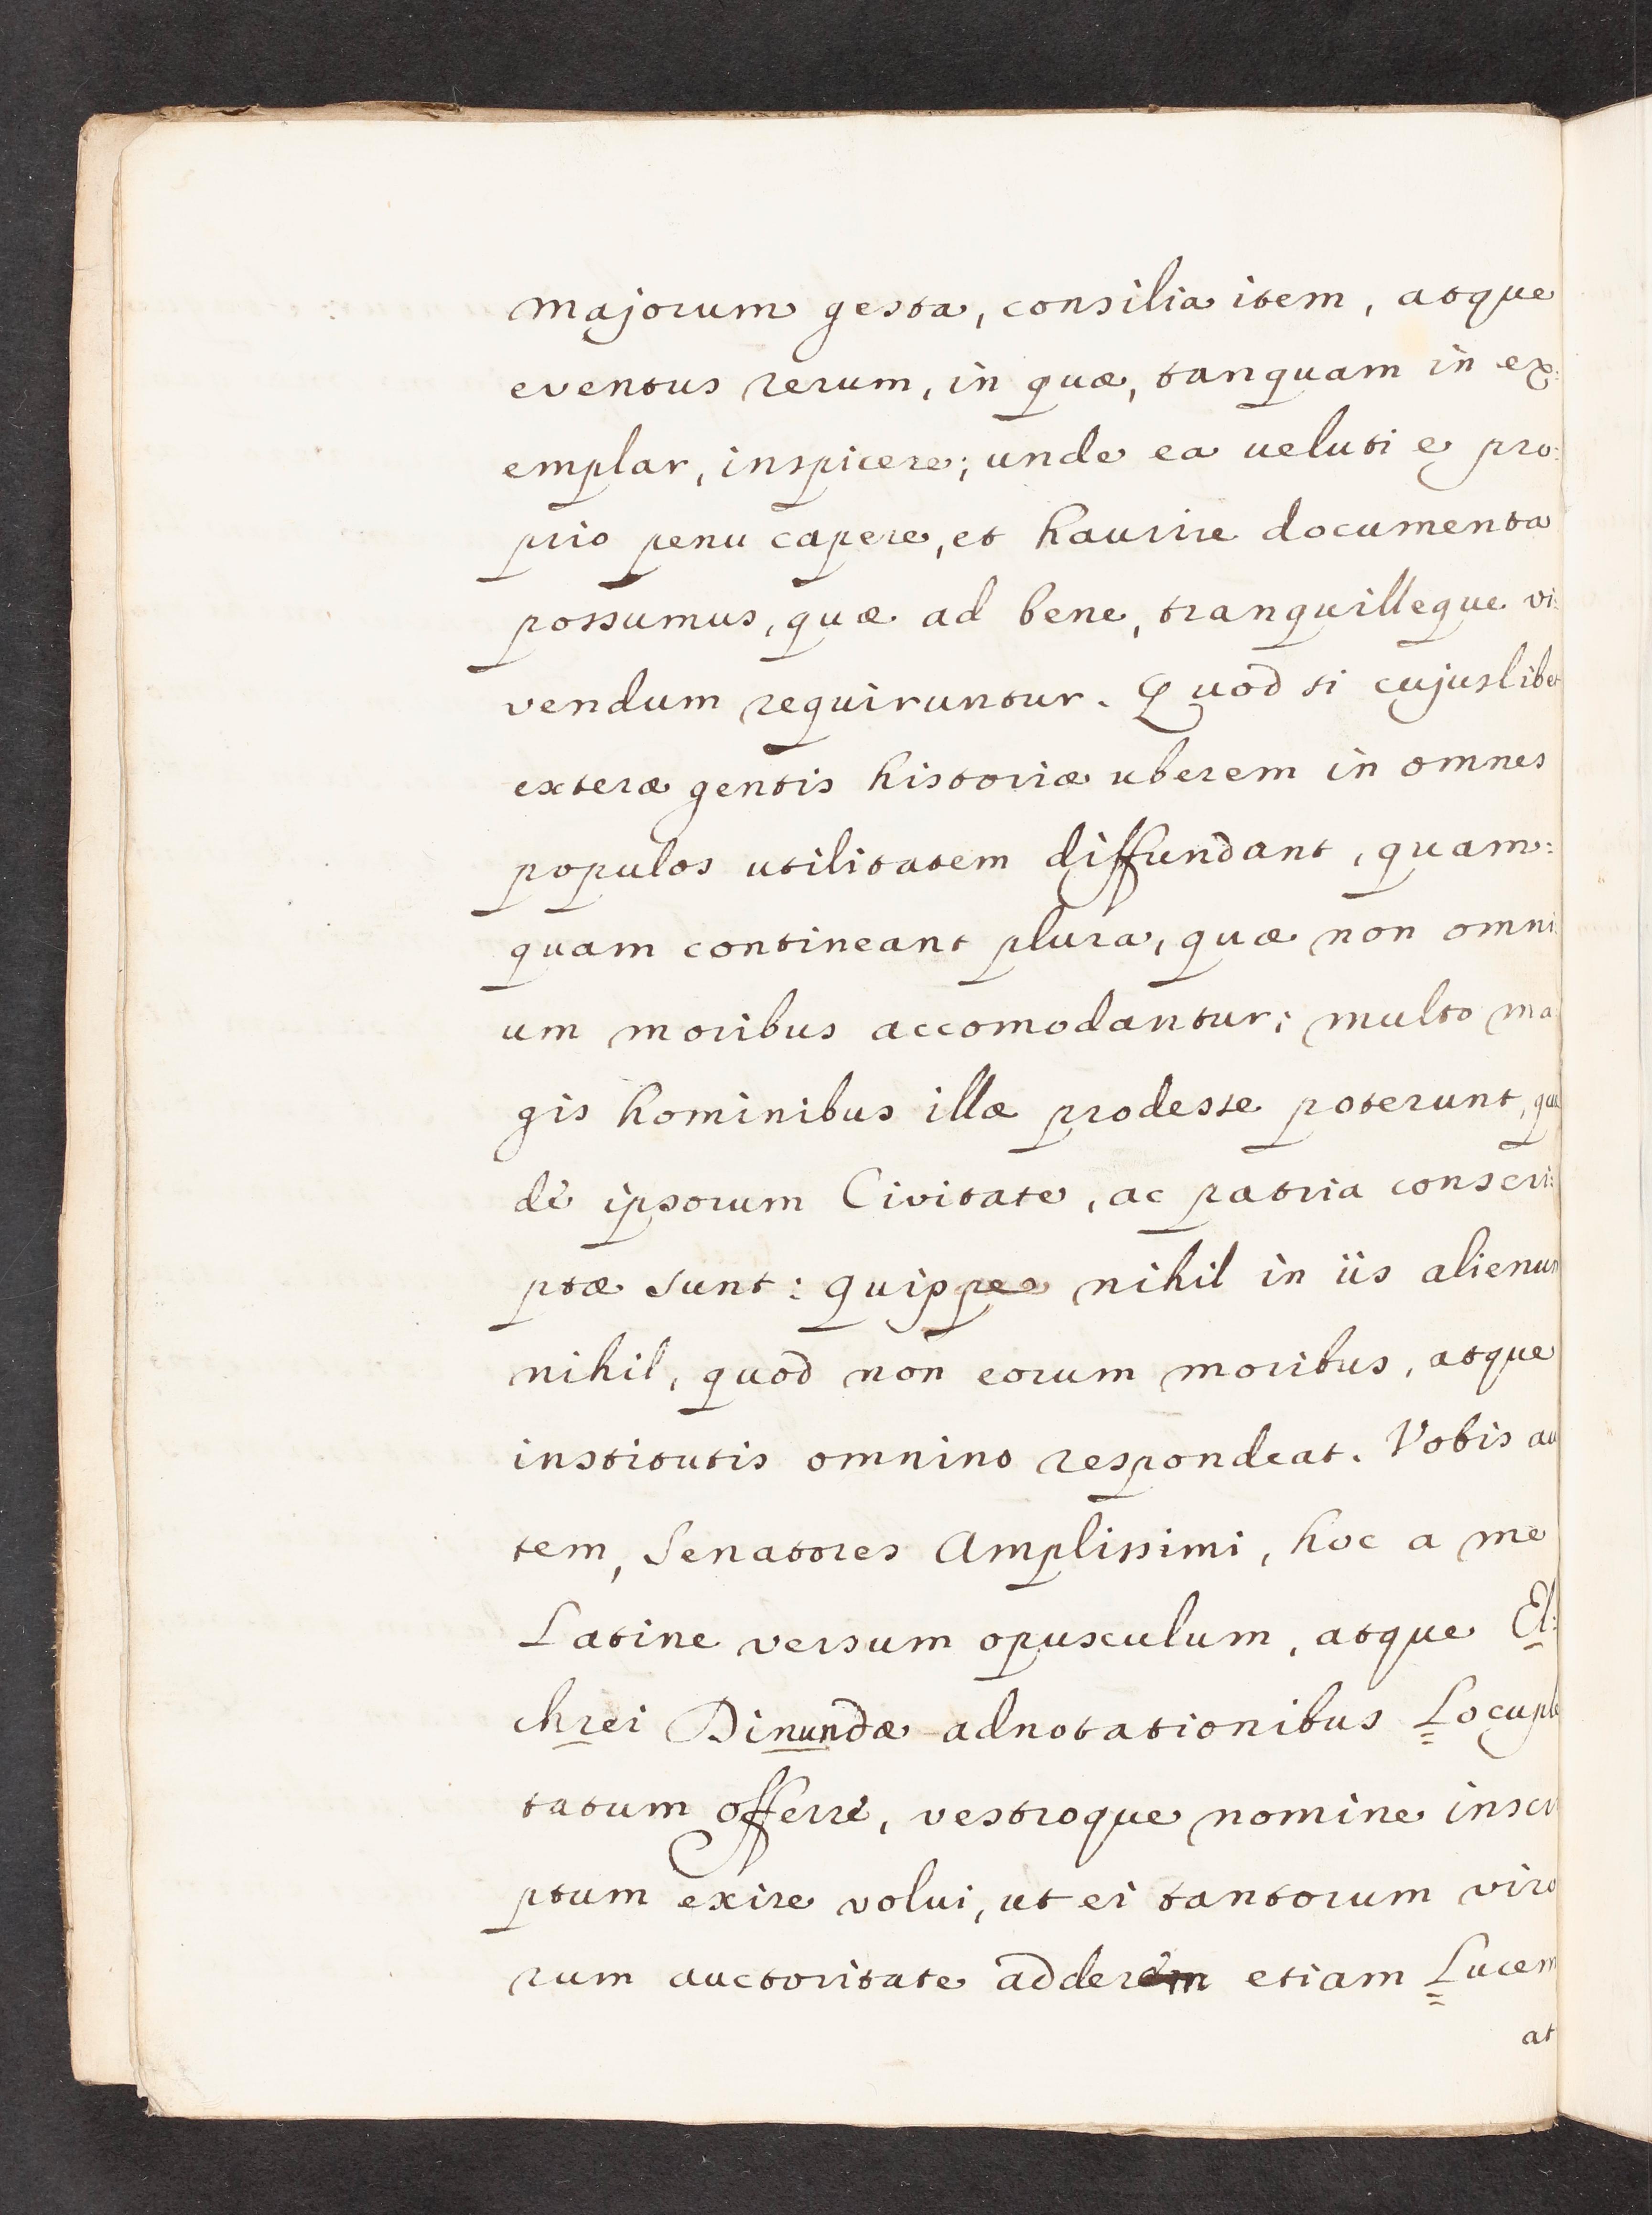 majorum gesta, consilia item, atque
eventus rerum, in quæ, tanquam in ex:
emplar, inspicere; unde ea veluti e pro:
prio penu capere, et haurire documenta
possumus, quæ ad bene, tranquilleque vi:
vendum requiruntur. Quod si cujuslibet
exteræ gentis historiæ uberem in omnes
populos utilitatem diffundant, quam:
quam contineant plura, quæ non omni
um moribus accomodantur; multo ma
gis hominibus illæ prodesse poterunt, quæ
de ipsorum Civitate, ac patria conscri:
ptæ sunt: quippe nihil in iis alienum
nihil, quod non eorum moribus, atque
institutis omnino respondeat. Vobis au
tem, Senatores Amplissimi, hoc a me
Latine versum opusculum, atque El:
chrei Dinundæ adnotationibus Locuple
tatum offerre, vestroque nomine inscri
ptum exire volui, ut ei tantorum viro
rum auctoritate adderem etiam Lucem
at